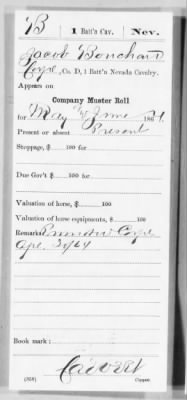 B | 1 Batt'n Cav. | Nev.
Jacob Bonchard
Corpl, Co. D, 1 Batt'n Nevada Cavalry.
Appears on
Company Muster Roll
for May & June, 1864.
Present or absent Present
Stoppage, $ 100 for
Due Gov't $ 100 for
Valuation of horse, $ 100
Valuation of horse equipments, $ 100
Remarks: Promoted Corpl
Apl. 30/64
Book mark:
Calvert
(358) Copyist.